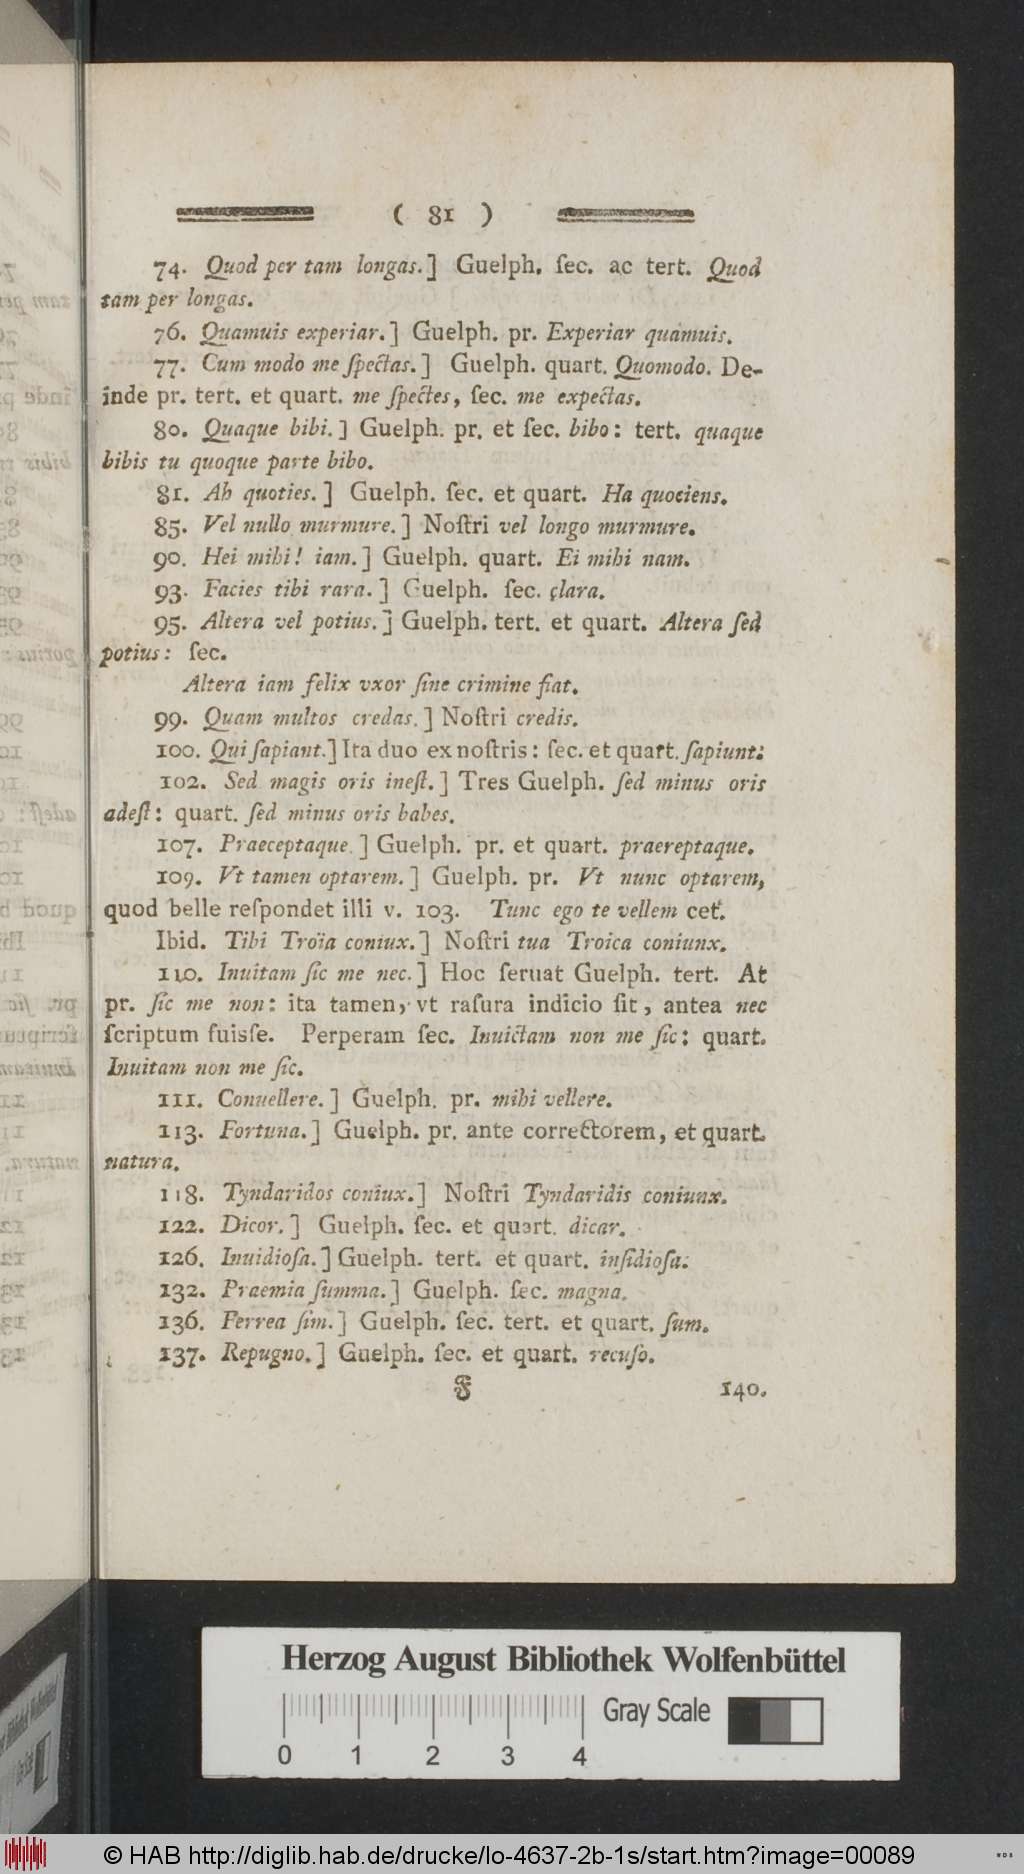 ( 81 )
74. Quod per tam longas.] Guelph. ſec. ac tert. Quod
tam per longas.
76. Quamuis experiar.] Guelph. pr. Experiar quamuis.
77. Cum modo me ſpectas.] Guelph. quart. Quomodo. De-
inde pr. tert. et quart. me ſpectes, ſec. me expectas.
80. Quaque bibi.] Guelph. pr. et ſec. bibo: tert. quaque
bibis tu quoque parte bibo.
81. Ah quoties.] Guelph. ſec. et quart. Ha quociens.
85. Vel nullo murmure.] Noſtri vel longo murmure.
90. Hei mihi! iam.] Guelph. quart. Ei mihi nam.
93. Facies tibi rara.] Guelph. ſec. clara.
95. Altera vel potius.] Guelph. tert. et quart. Altera ſed
potius: ſec.
Altera iam felix vxor ſine crimine fiat.
99. Quam multos credas.] Noſtri credis.
100. Qui ſapiant.] Ita duo ex noſtris: ſec. et quart. ſapiunt:
102. Sed magis oris ineſt.] Tres Guelph. ſed minus oris
adeſt: quart. ſed minus oris habes.
107. Praeceptaque.] Guelph. pr. et quart. praereptaque.
109. Vt tamen optarem.] Guelph. pr. Vt nunc optarem,
quod belle reſpondet illi v. 103. Tunc ego te vellem cet.
Ibid. Tibi Troïa coniux.] Noſtri tua Troica coniunx.
110. Inuitam ſic me nec.] Hoc ſeruat Guelph. tert. At
pr. ſic me non: ita tamen, vt raſura indicio ſit, antea nec
ſcriptum fuisſe. Perperam ſec. Inuictam non me ſic: quart.
Inuitam non me ſic.
111. Conuellere.] Guelph. pr. mihi vellere.
113. Fortuna.] Guelph. pr. ante correctorem, et quart.
natura.
118. Tyndaridos coniux.] Noſtri Tyndaridis coniunx.
122. Dicor.] Guelph. ſec. et quart. dicar.
126. Inuidioſa.] Guelph. tert. et quart. inſidioſa:
132. Praemia ſumma.] Guelph. ſec. magna.
136. Ferrea ſim.] Guelph. ſec. tert. et quart. ſum.
137. Repugno.] Guelph. ſec. et quart. recuſo.
F 140.
Herzog August Bibliothek Wolfenbüttel
0 1 2 3 4 Gray Scale
© HAB http://diglib.hab.de/drucke/lo-4637-2b-1s/start.htm?image=00089